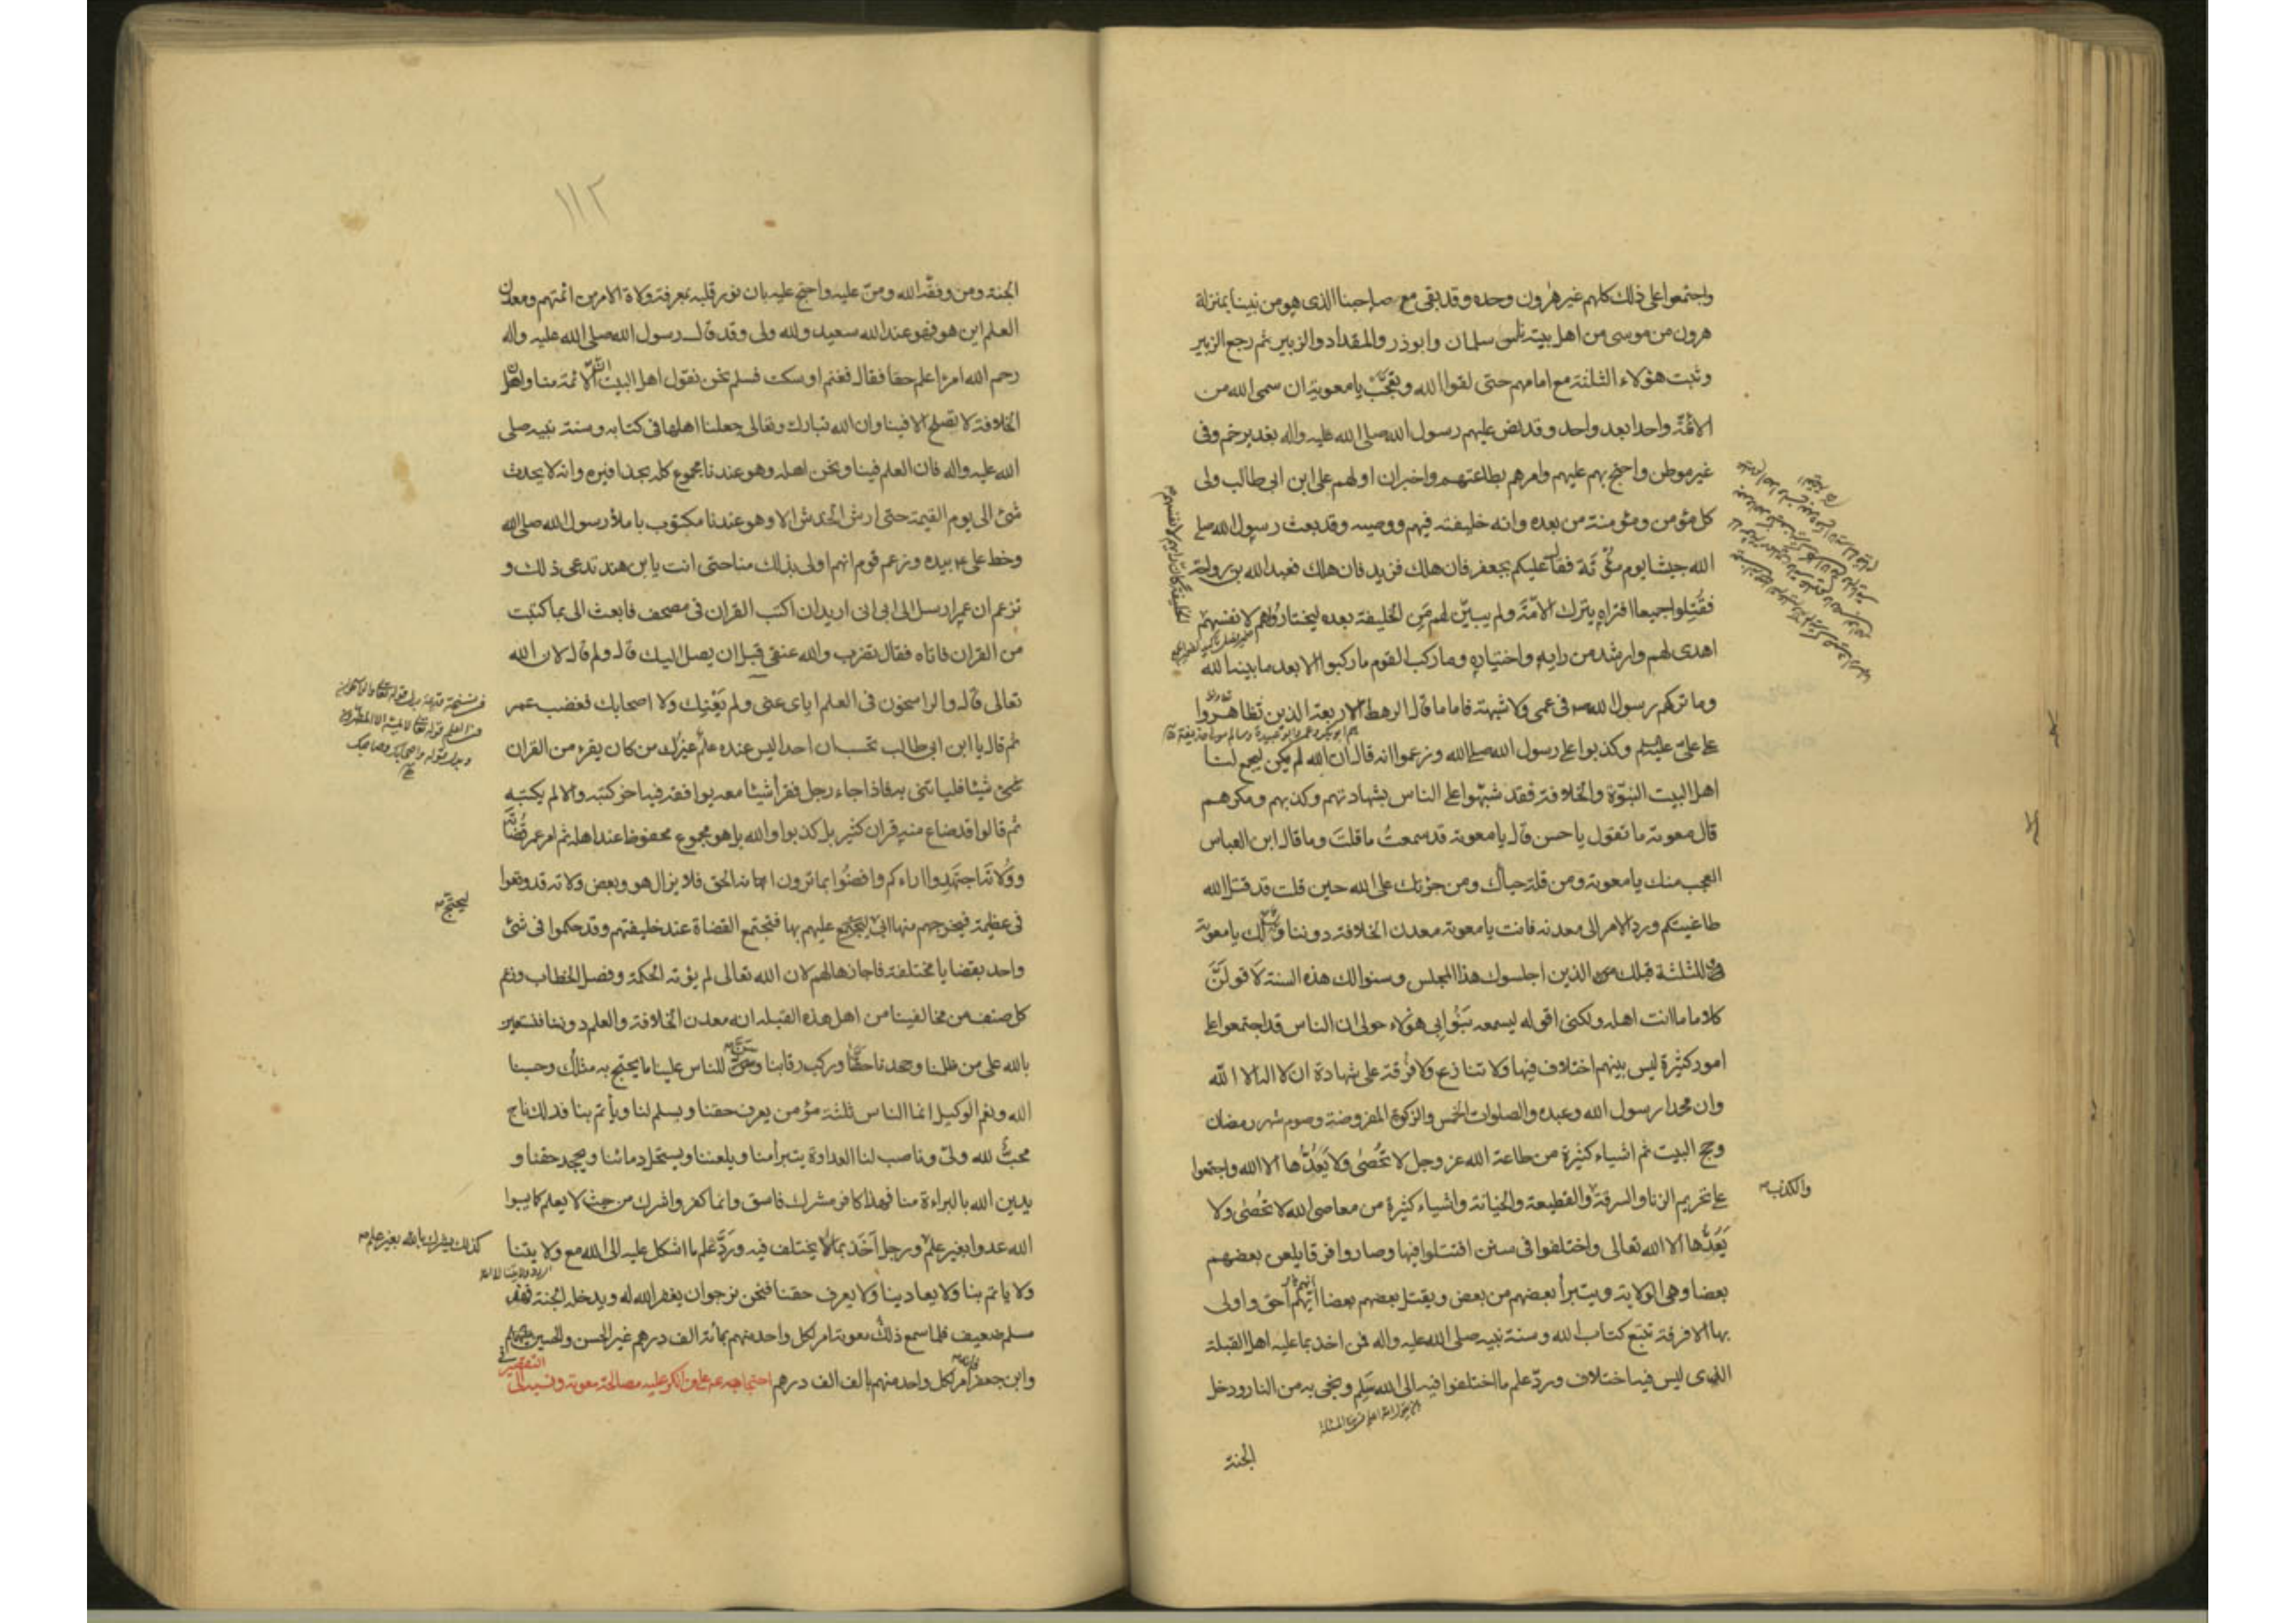 واجتمعوا على ذلك كلهم غير هرون وحده وقد بقى مع صاحبنا الذى هو من نبينا بمنزلة
هرون من موسى من اهل بيته سلمان وابوذر والمقداد والزبير ثم رجع الزبير
وثبت هؤلاء الثلثة مع امامهم حتى لقوا الله وتعجب يا معوية ان سمى الله من
الائمة واحدا بعد واحد وقد نص عليهم رسول الله صلى الله عليه واله بغدير خم وفى
غير موطن واحتج بهم عليهم وامرهم بطاعتهم واخبر ان اولهم على ابن ابى طالب ولى
كل مؤمن ومؤمنة من بعده وانه خليفته فيهم ووصيه وقد بعث رسول الله صلى
الله جيشا يوم مؤتة فقال عليكم بجعفر فان هلك فزيد فان هلك فعبد الله بن رواحة
فقتلوا جميعا افتراه يترك الامة ولم يبين لهم من الخليفة بعده ليختاروا هم لانفسهم
اهدى لهم وارشد من رايه واختياره وما ركب القوم ما ركبوا الا بعد ما بينا لله
وما تركهم رسول الله ص فى عمى ولا شبهة فاما ما قال الرهط الاربعة الذين تظاهروا
على على عليه السلام وكذبوا على رسول الله صلى الله وزعموا انه قال ان الله لم يكن ليجمع لنا
اهل البيت النبوة والخلافة فقد شبهوا على الناس بشهادتهم وكذبهم ومكرهم
قال معوية ما تقول يا حسن قال يا معوية قد سمعت ما قلت وما قال ابن العباس
العجب منك يا معوية ومن قلة حياك ومن جرئتك على الله حين قلت قد قتل الله
طاغيتكم ورد الامر الى معدنه فانت يا معوية معدن الخلافة دوننا ويل لك يا معوية
وللثلثة قبلك الذين اجلسوك هذا المجلس وسنوا لك هذه السنة لاقولن
كلاما ما انت اهله ولكنى اقوله ليسمعه بنو ابى هؤلاء حولى ان الناس قد اجتمعوا على
امور كثيرة ليس بينهم اختلاف فيها ولا تنازع ولا فرقة على شهادة ان لا اله الا الله
وان محمدا رسول الله وعبده والصلوات الخمس والزكوة المفروضة وصوم شهر رمضان
وحج البيت ثم اشياء كثيرة من طاعة الله عز وجل لا تحصى ولا يعدها الا الله واجتمعوا
على تحريم الزنا والسرقة والقطيعة والخيانة واشياء كثيرة من معاصى الله لا تحصى ولا
والكذب
يعدها الا الله تعالى واختلفوا فى سنن اقتتلوا فيها وصاروا فرقا يلعن بعضهم
بعضا وهى الولاية ويتبرأ بعضهم من بعض ويقتل بعضهم بعضا ايهم احق واولى
بها الا فرقة تتبع كتاب الله وسنة نبيه صلى الله عليه واله فمن اخذ بما عليه اهل القبلة
الذى ليس فيه اختلاف ورد علم ما اختلفوا فيه الى الله سلم ونجى به من النار ودخل
الجنة
١١٢
الجنة ومن وفقه الله ومن عليه واحتج عليه بان نور قلبه بمعرفة ولاة الامر من ائمتهم ومعدن
العلم اين هو فهو عند الله سعيد ولله ولى وقد قال رسول الله صلى الله عليه واله
رحم الله امرءا علم حقا فقال فغنم او سكت فسلم نحن نقول اهل البيت ان الائمة منا وان
الخلافة لا تصلح الا فينا وان الله تبارك وتعالى جعلنا اهلها فى كتابه وسنة نبيه صلى
الله عليه واله فان العلم فينا ونحن اهله وهو عندنا مجموع كله بحذافيره وانه لا يحدث
شئ الى يوم القيمة حتى ارش الخدش الا وهو عندنا مكتوب باملاء رسول الله صلى الله
وخط على ع بيده وزعم قوم انهم اولى بذلك منا حتى انت يا بن هند تدعى ذلك و
تزعم ان عمر ارسل الى ابى انى اريد ان اكتب القران فى مصحف فابعث الى بما كتبت
من القران فاتاه فقال تضرب والله عنقى قبل ان يصل اليك قال ولم قال لان الله
تعالى قال والراسخون فى العلم اياى عنى ولم يعنك ولا اصحابك فغضب عمر
ثم قال يا ابن ابى طالب تحسب ان احدا ليس عنده علم غيرك من كان يقرء من القران
شيئا فلياتنى به فاذا جاء رجل فقرأ شيئا معه يوافقه فيه اخر كتبه والا لم يكتبه
ثم قالوا قد ضاع منه قران كثير بل كذبوا والله بل هو مجموع محفوظ عند اهله ثم امر عمر قضاته
وولاته اجتهدوا اراءكم واقضوا بما ترون انه الحق فلا يزال هو وبعض ولاته قد وقعوا
فى عظيمة فيخرجهم منها ابى ليحتج عليهم بها فتجتمع القضاة عند خليفتهم وقد حكموا فى شئ
ليحتج
واحد بقضايا مختلفة فاجازها لهم لان الله تعالى لم يؤته الحكمة وفصل الخطاب وزعم
كل صنف من مخالفينا من اهل هذه القبلة انه معدن الخلافة والعلم دوننا فنستعين
بالله على من ظلمنا وجحدنا حقنا وركب رقابنا وسن للناس علينا ما يحتج به مثلك وحسبنا
الله ونعم الوكيل انما الناس ثلثة مؤمن يعرف حقنا ويسلم لنا ويأتم بنا فذلك ناج
محب لله ولى وناصب لنا العداوة يتبرأ منا ويلعننا ويستحل دمائنا ويجحد حقنا و
يدين الله بالبراءة منا فهذا كافر مشرك فاسق وانما كفر واشرك من حيث لا يعلم كما يسبوا
الله عدوا بغير علم ورجل اخذ بما لا يختلف فيه ورد علم ما اشكل عليه الى الله مع ولايتنا
كذلك يشرك بالله بغير علم
ولا ياتم بنا ولا يعادينا ولا يعرف حقنا فنحن نرجو ان يغفر الله له ويدخله الجنة فهذا
مسلم ضعيف فلما سمع ذلك معوية امر لكل واحد منهم بمائة الف درهم غير الحسن والحسين
وابن جعفر فانه امر لكل واحد منهم بالف الف درهم احتجاجه ع على من انكر عليه مصالحة معوية ونسبه الى
التقصير فى